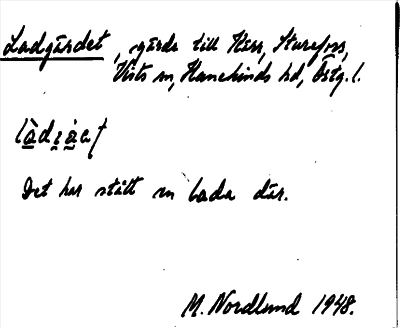 Ladgärdet, gärde till Kärr, Sturefors,
Vists sn, Hanekinds hd, Östg. l.
Det har stått en lada där.
M. Nordlund 1948.